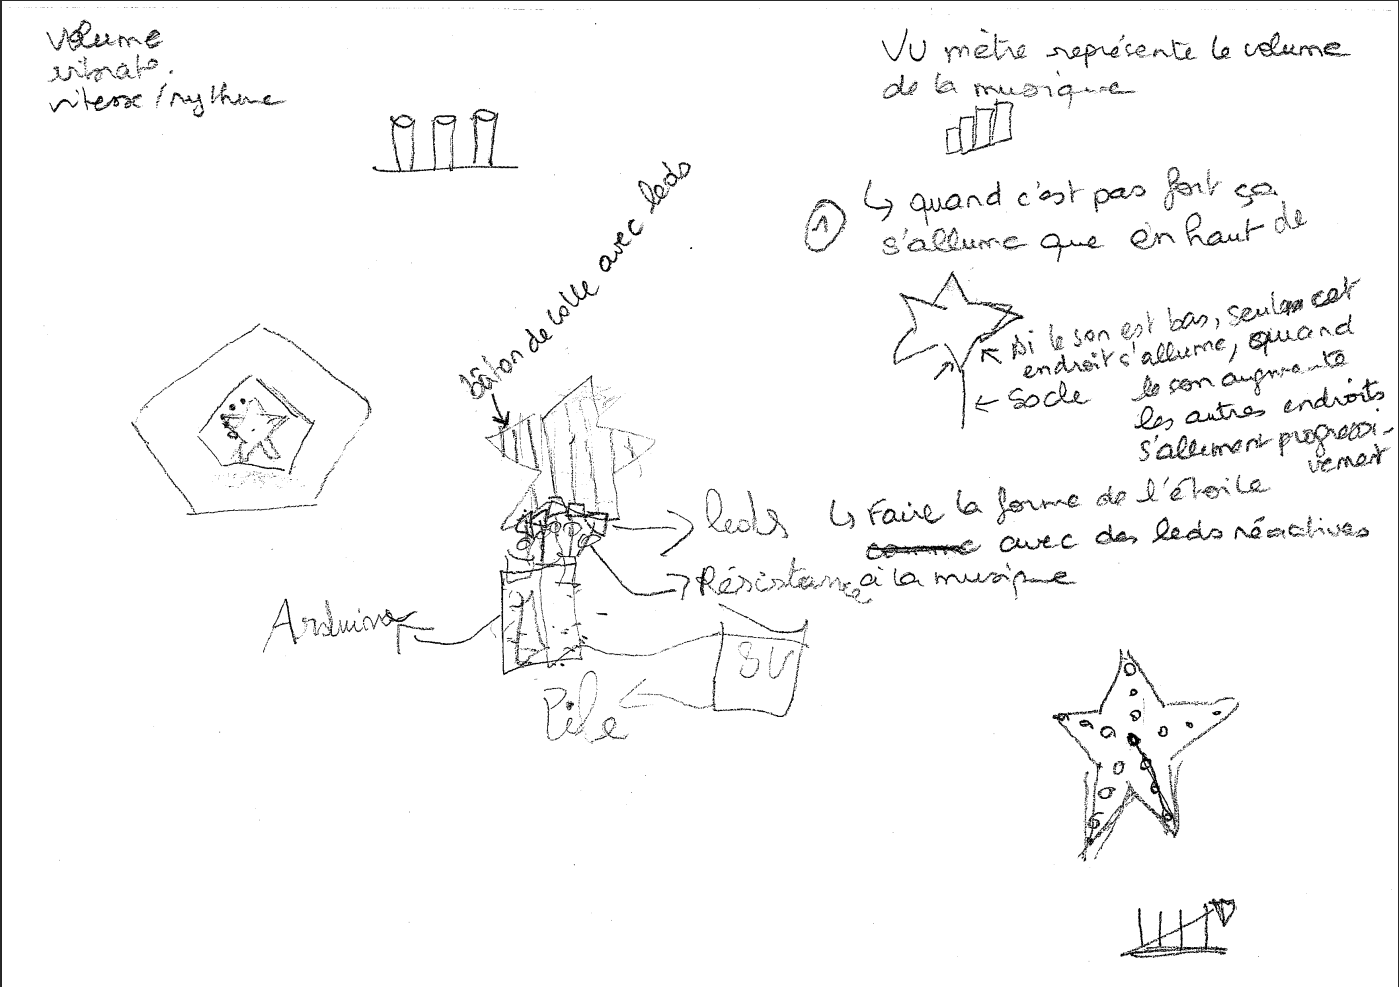 Volume
vibrato.
vitesse / rythme
VU mètre représente le volume
de la musique
1
↳ quand c'est pas fort ça
s'allume que en haut de
bâton de colle avec leds
← Si le son est bas, seul cet
endroit s'allume, quand
le son augmente
les autres endroits
s'allument progressi-
vement
← Socle
leds
↳ Faire la forme de l'étoile
avec des leds réactives
à la musique
Résistance
Arduino
Pile